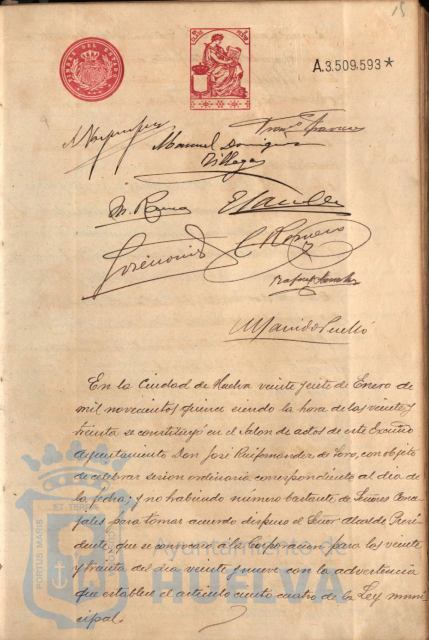 15
TIMBRE DEL ESTADO
A.3.509.593*
Manuel Dominguez
Villegas
M. Roma
C. Romero
Rafael
En la Ciudad de Huelva veinte y siete de Enero de
mil novecientos quince siendo la hora de las veinte y
treinta se constituyó en el Salon de actos de este Excmo
Ayuntamiento Don José Ruifernandez de Toro, con objeto
de celebrar sesion ordinaria correspondiente al dia de
la fecha; y no habiendo número bastante de Señores Conce
jales para tomar acuerdo dispuso el Señor Alcalde Presi
dente, que se convocara á la Corporacion para las veinte
y treinta del dia veinte y nueve con la advertencia
que establece el artículo ciento cuatro de la Ley muni
cipal.
PORTUS MARIS ET TERRAE
Ayuntamiento de
HUELVA